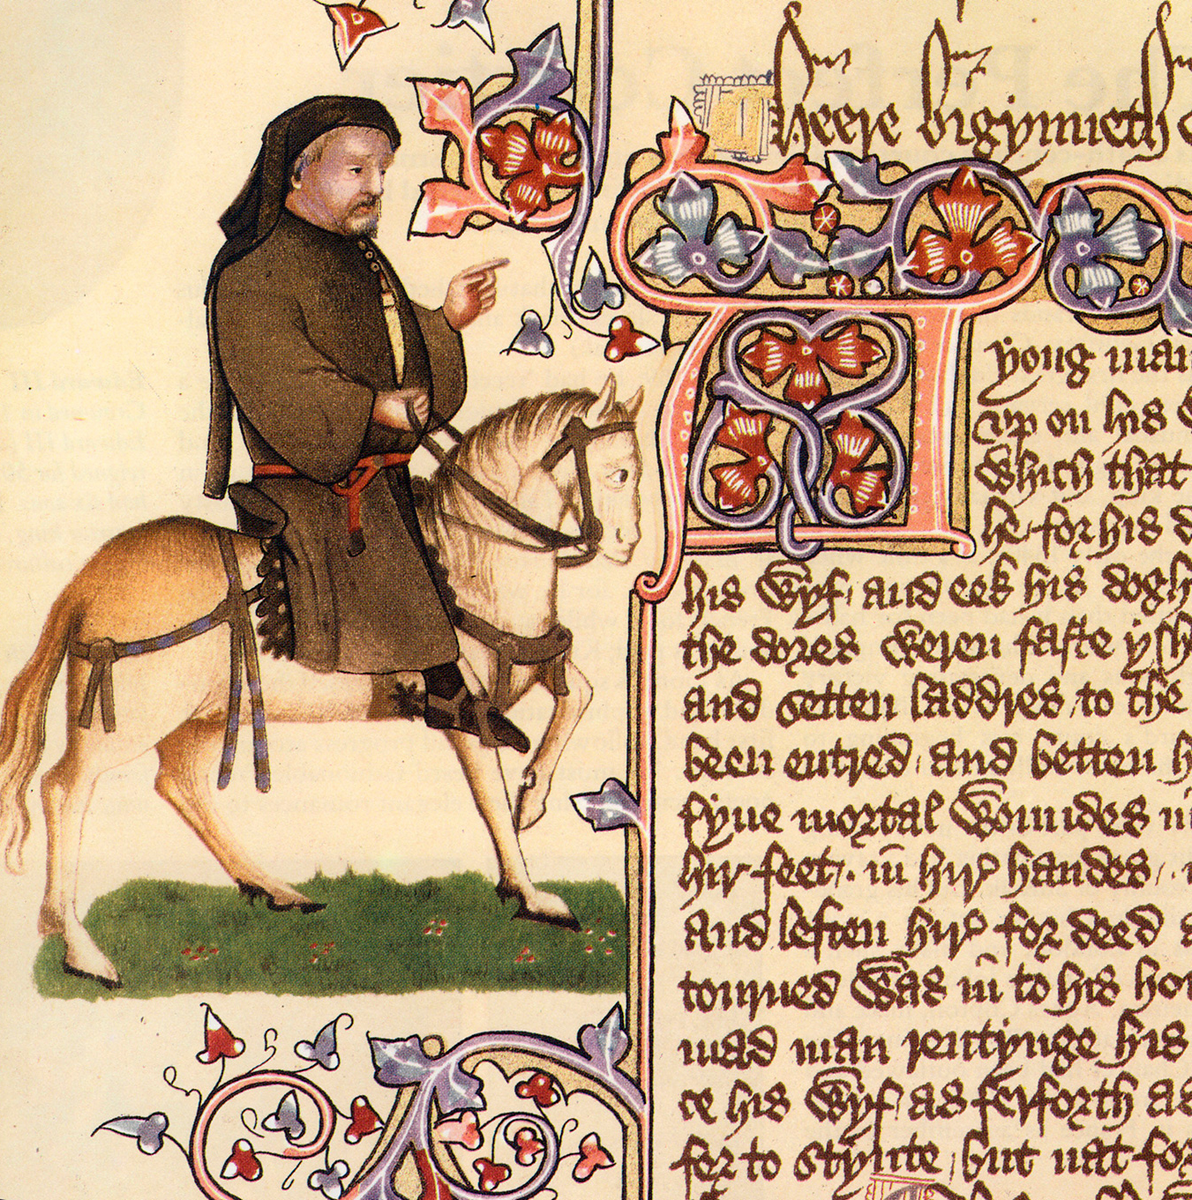 Heere bigynneth
A
yong man
up on his
which that
he for his d
his wyf and eek his dogh
the dores weren faste ysh
and setten laddres to the
been entred and betten h
fyue mortal woundes in
hir feet in hir handes
and leften hir for deed a
tourned was in to his hou
mad man rentynge his
te his wyf as ferforth as
fer to stynte but nat for